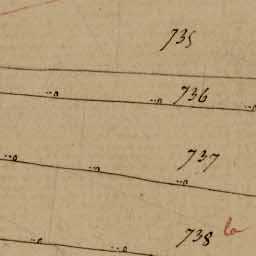 735
736
737
738 la